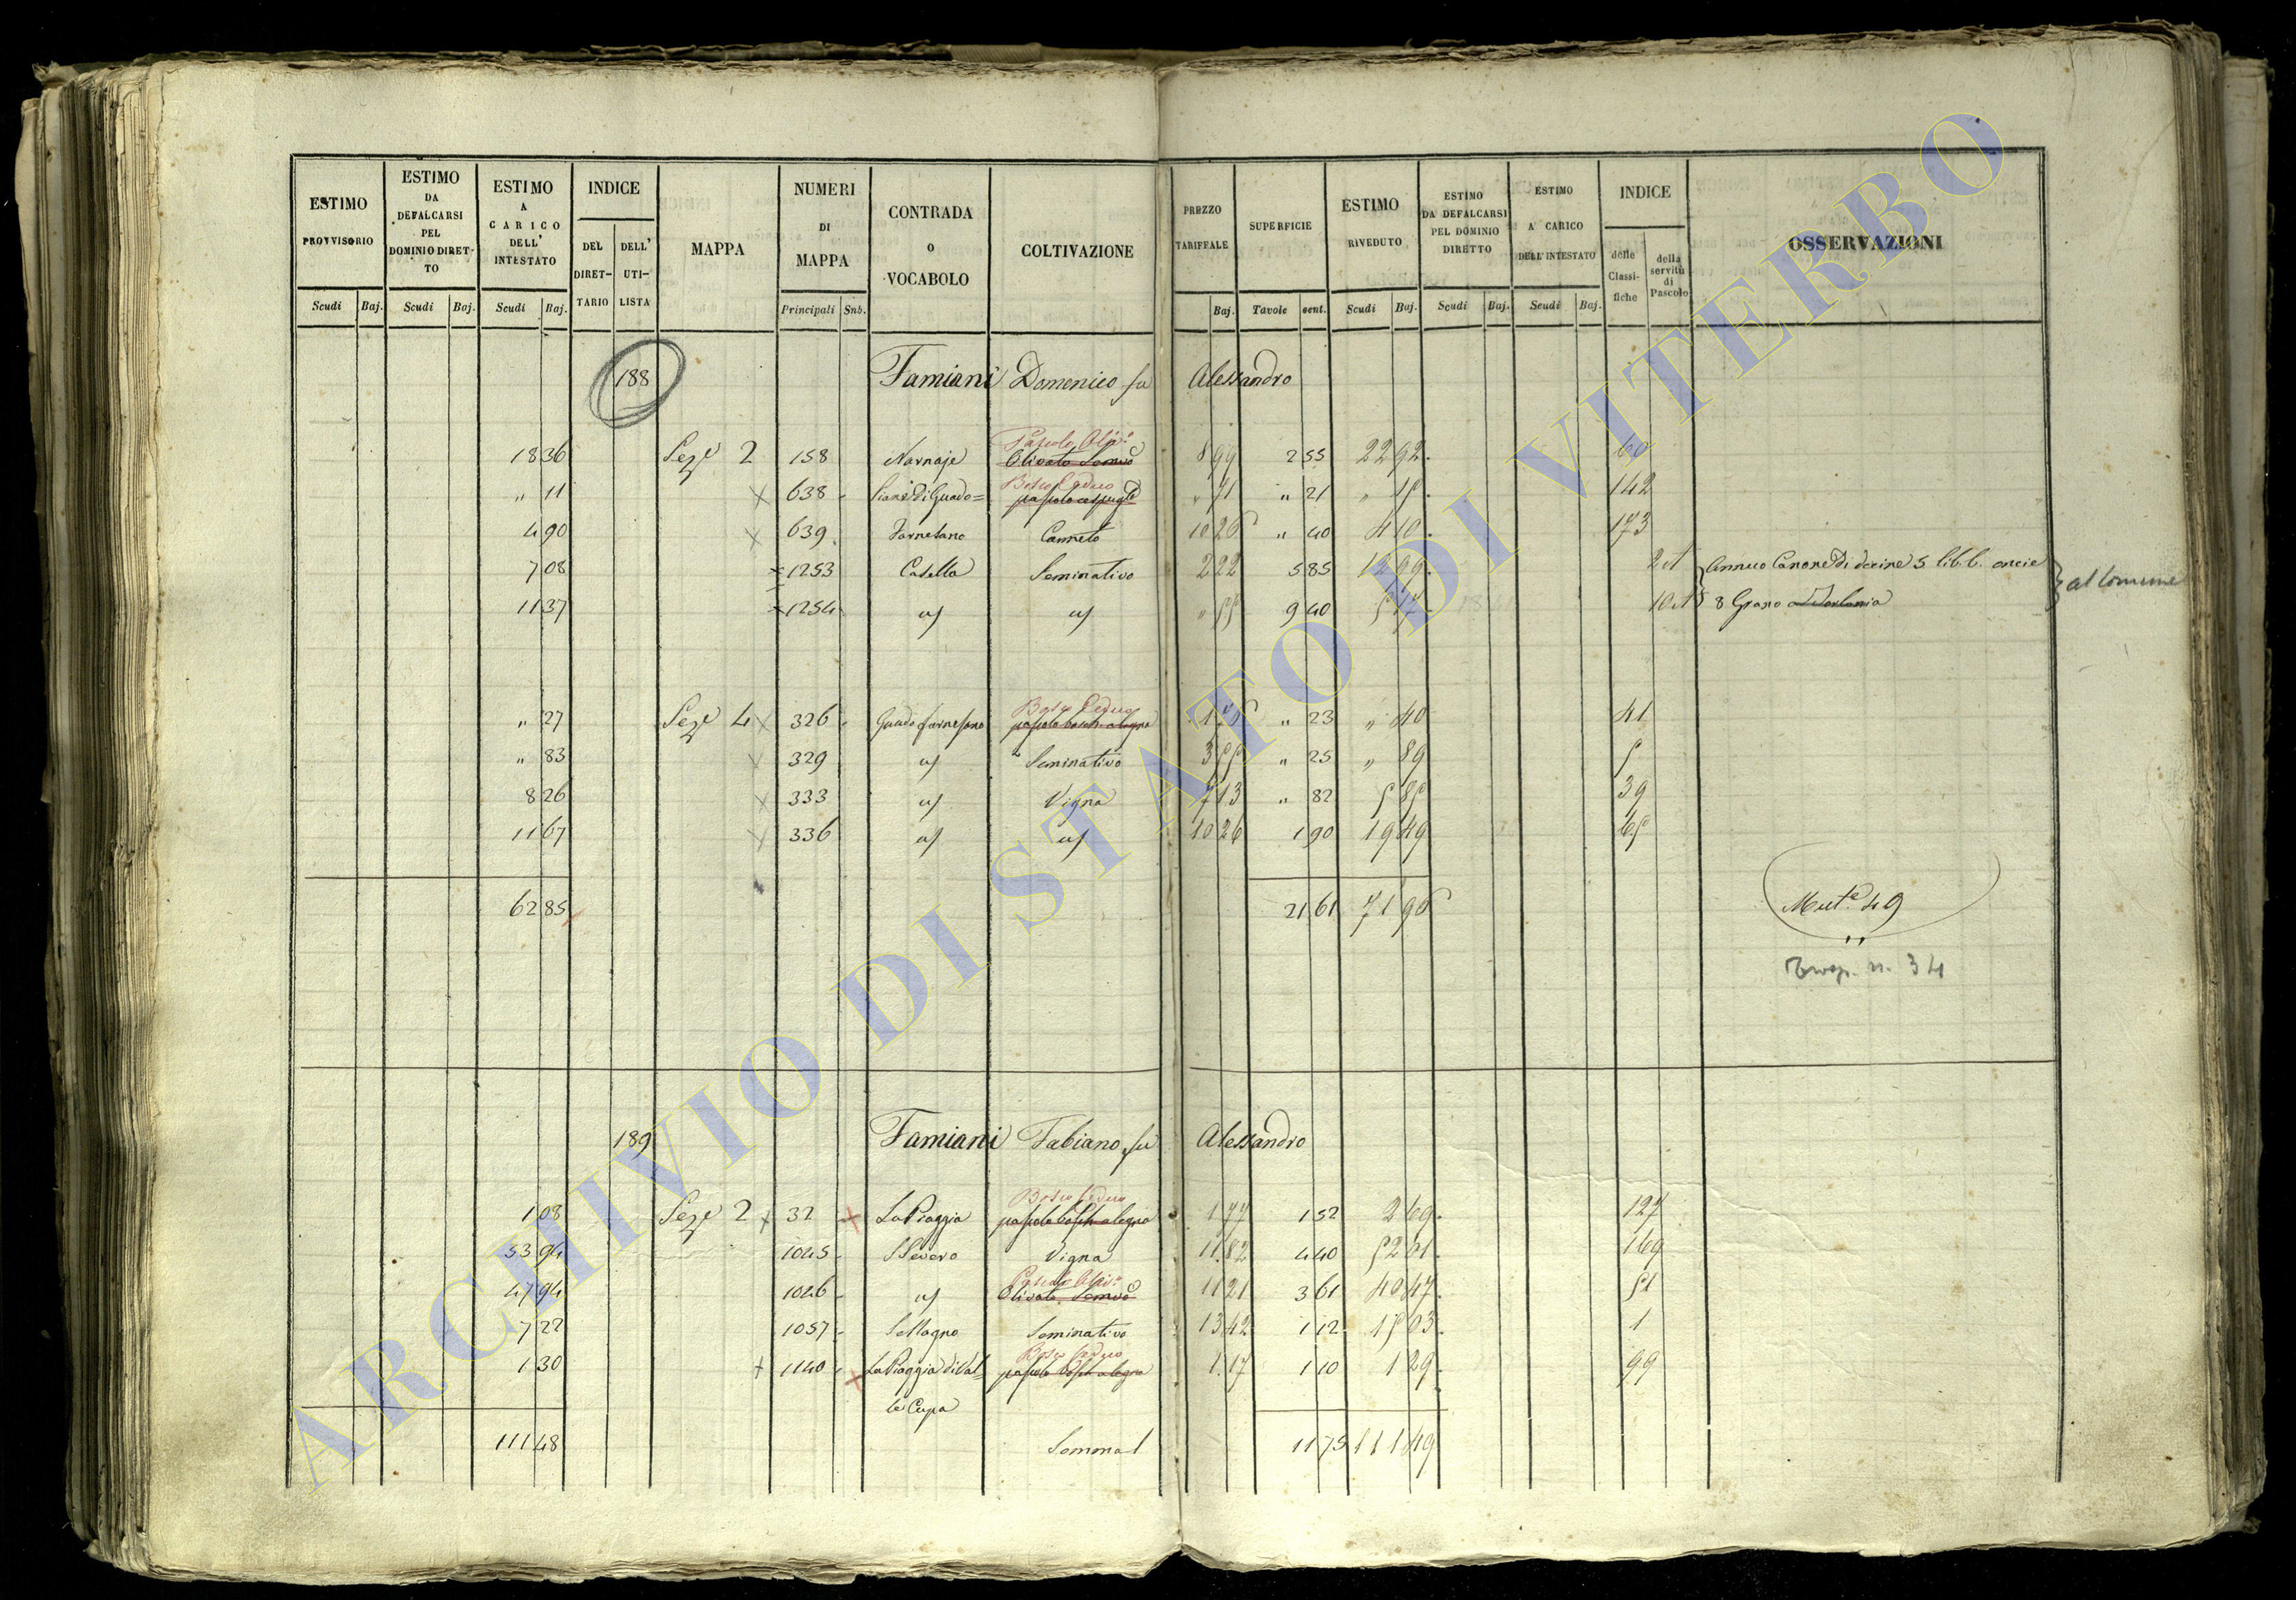 ESTIMO PROVVISORIO
ESTIMO DA DEFALCARSI PEL DOMINIO DIRETTO
ESTIMO A CARICO DELL' INTESTATO
INDICE
DEL DIRETTARIO
DELL' UTILISTA
MAPPA
NUMERI DI MAPPA
CONTRADA O VOCABOLO
COLTIVAZIONE
PREZZO TARIFFALE
SUPERFICIE
ESTIMO RIVEDUTO
ESTIMO DA DEFALCARSI PEL DOMINIO DIRETTO
ESTIMO A CARICO DELL' INTESTATO
INDICE
delle Classifiche
della servitù di Pascolo
OSSERVAZIONI
Scudi Baj. Scudi Baj. Scudi Baj. Principali Sub. Baj. Tavole cent. Scudi Baj. Scudi Baj. Scudi Baj.
188 Famiani Domenico fu Alessandro
Pascolo Oliv.o
18 36 Sez.e 2 158 Narnaje Olivato Semvo 8 99 2 55 22 92 60
Bosco Ceduo
" 11 638 Piane di Guado= pascolo cespugl.o " 71 " 21 " 15 142
4 90 639 Farnesano Canneto 10 26 " 40 4 10 173
7 08 1253 Casella Seminativo 2 22 5 85 12 99 2 A Annuo Canone di decine 5 lib. 6. oncie
11 37 1254 " 55 9 40 5 17 10 A 8 Grano al Comune
" 27 Sez.e 4 326 Guado farnesano 1 75 " 23 " 40 41
Bosco Ceduo
pascolo bosch. a legna
" 83 329 Seminativo 3 55 " 25 " 89 5
8 26 333 Vigna 7 13 " 82 5 85 39
11 67 336 10 26 1 90 19 49 65
62 85 21 61 71 96 Mut.e 49
n. 34
189 Famiani Fabiano fu Alessandro
Bosco Ceduo
1 08 Sez.e 2 32 La Piaggia pascolo bosch. a legna 1 77 1 52 2 69 127
53 94 1045 S Severo Vigna 11 82 4 40 52 01 169
Pascolo Oliv.o
47 94 1046 Olivato Semvo 11 21 3 61 40 47 51
7 22 1057 Seminativo 13 42 1 12 15 03 1
Bosco Ceduo
1 30 1140 La Piaggia di Val= pascolo bosch a legna 1 17 1 10 1 29 99
le Cupa
111 48 Somma 11 75 111 49
ARCHIVIO DI STATO DI VITERBO